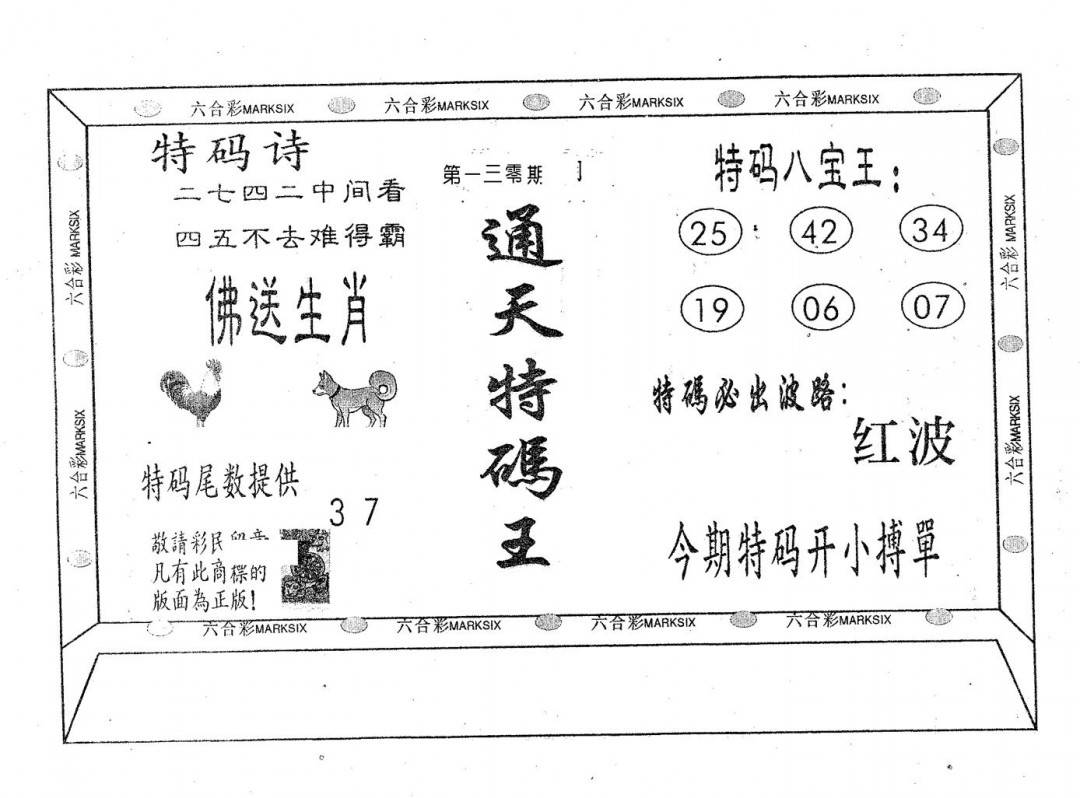 六合彩MARKSIX 六合彩MARKSIX 六合彩MARKSIX 六合彩MARKSIX
六合彩 MARKSIX
六合彩MARKSIX
特码诗
二七四二中间看
四五不去难得霸
佛送生肖
特码尾数提供
3 7
敬請彩民
凡有此商標的
版面為正版!
第一三零期
通天特碼王
特码八宝王:
25 42 34
19 06 07
特碼必出波路:
红波
今期特码开小搏單
六合彩 MARKSIX
六合彩MARKSIX
六合彩MARKSIX 六合彩MARKSIX 六合彩MARKSIX 六合彩MARKSIX